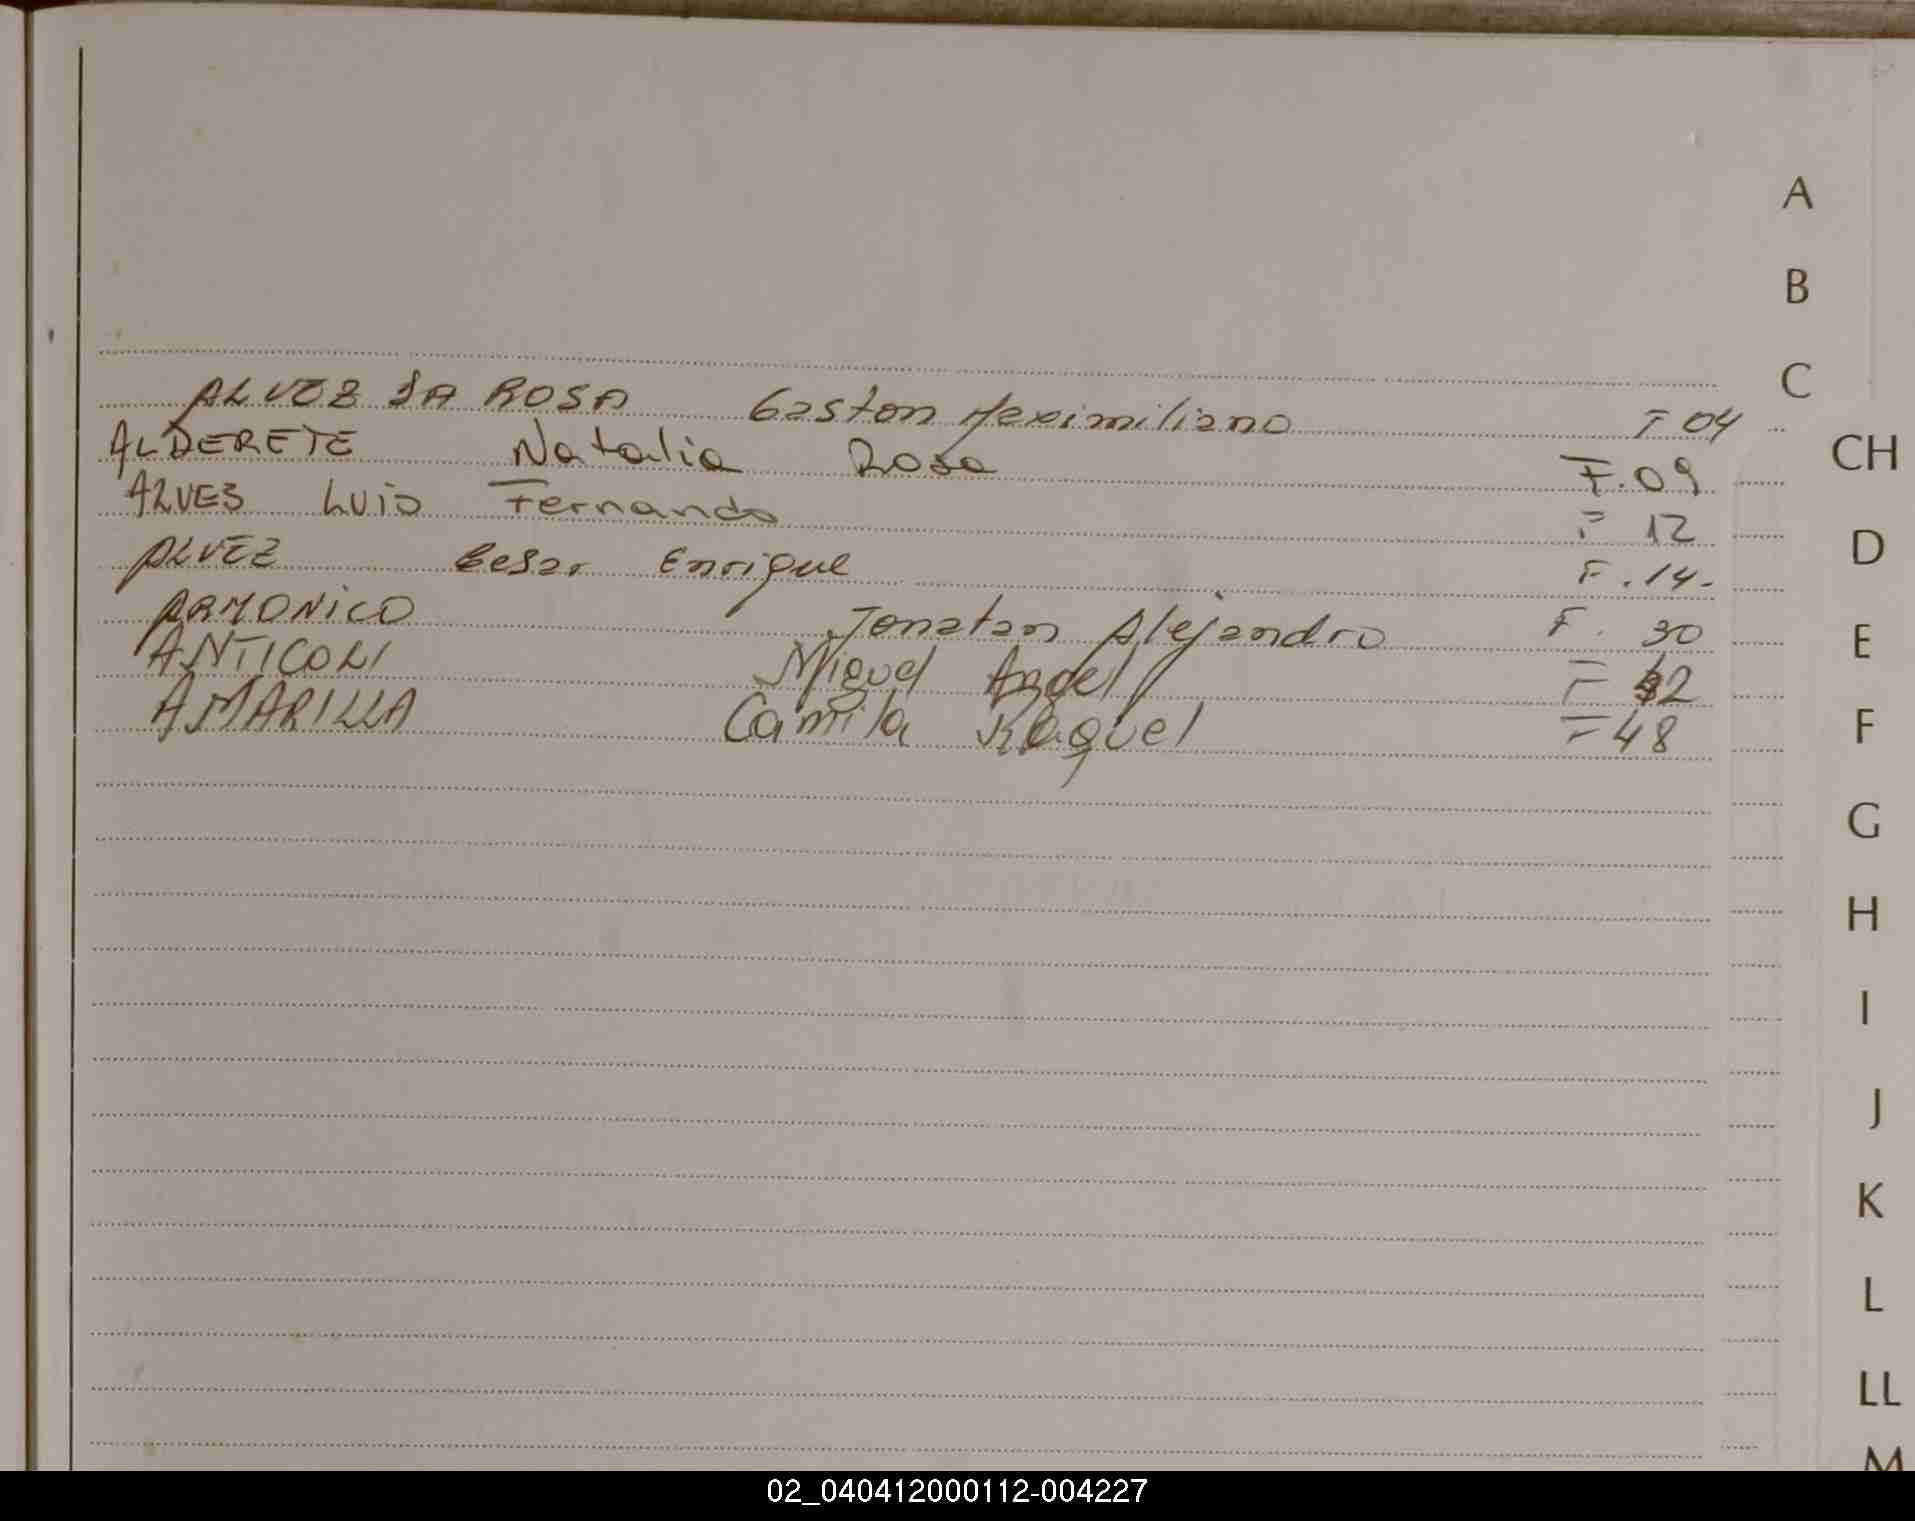 A
B
C
ALVEZ DA ROSA Gaston Maximiliano F 04
CH
ALDERETE Natalia Rosa F. 09
ALVES Luis Fernando F 12
D
ALVEZ Cesar Enrique F. 14.
ARMONICO Jonatan Alejandro F. 30
E
ANTICOLI Miguel Angel F 42
AMARILLA Camila Raquel F 48
F
G
H
I
J
K
L
LL
M
02_040412000112-004227